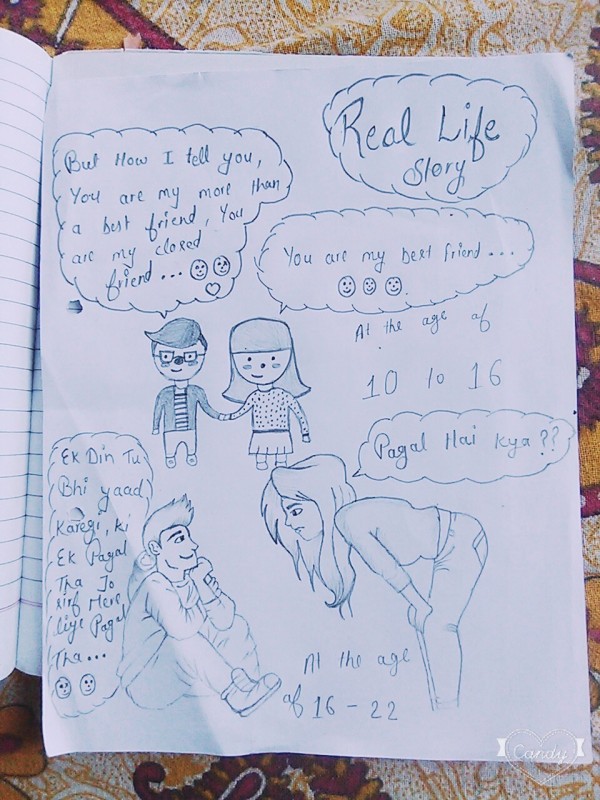 Real Life
Story
But How I tell you,
You are my more than
a best friend, You
are my closed
friend...
You are my best friend...
At the age of
10 to 16
Pagal Hai Kya ??
Ek Din Tu
Bhi yaad
Karegi, ki
Ek Pagal
Tha Jo
sirf Mere
liye Pagal
Tha...
At the age
of 16 - 22
Candy